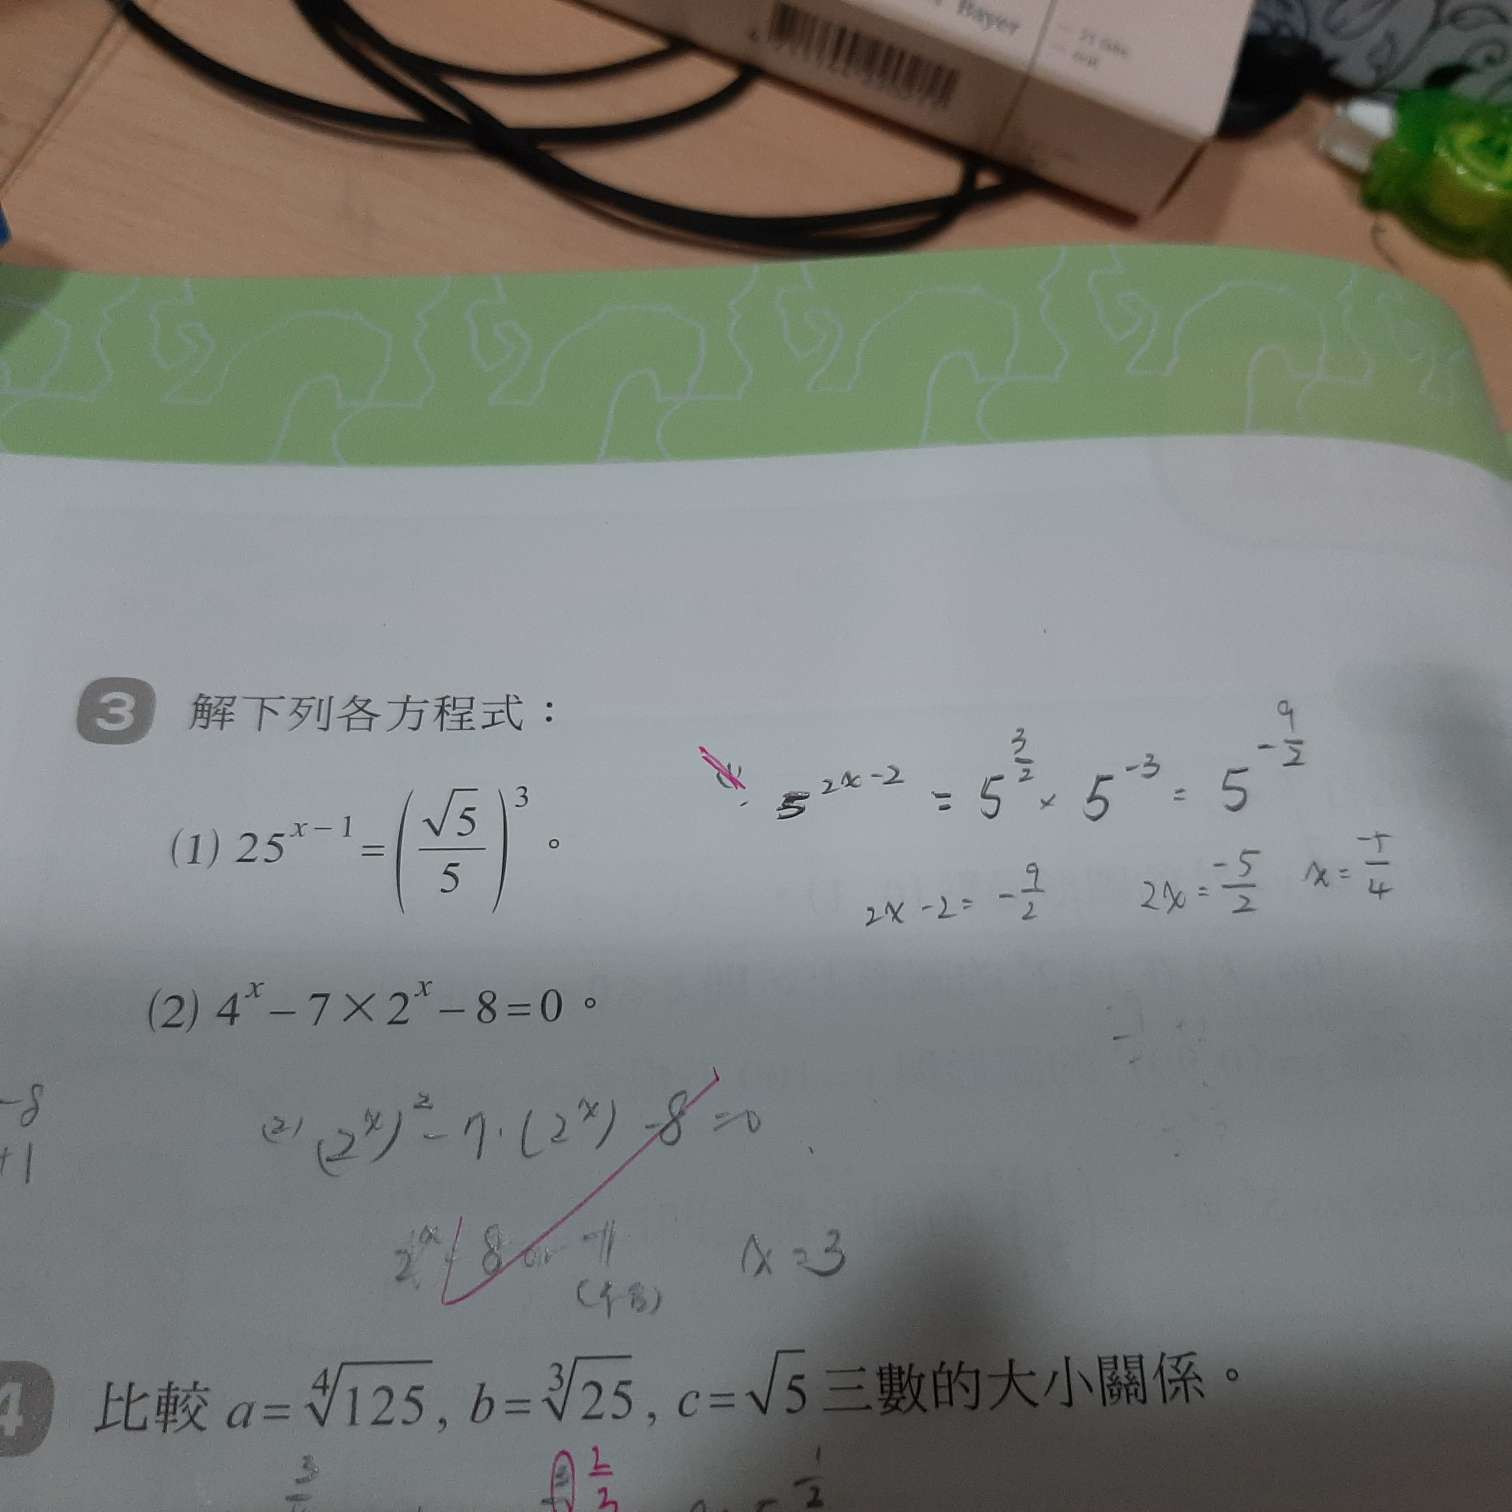 Bayer
3 解下列各方程式：
(1) 25^{x-1} = (√5/5)^3 。
(1) 5^{2x-2} = 5^{3/2} × 5^{-3} = 5^{-9/2}
2x-2 = -9/2 2x = -5/2 x = -5/4
(2) 4^x - 7×2^x - 8 = 0 。
-8
+1
(2) (2^x)^2 - 7·(2^x) - 8 = 0
2^x = 8 or -1 x = 3
(不合)
4 比較 a = ⁴√125 , b = ³√25 , c = √5 三數的大小關係。
3
2/3
1/2